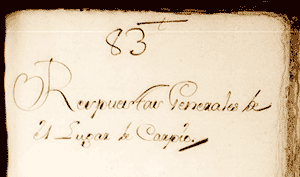 83
Respuestas Generales de
el Lugar de Carpio